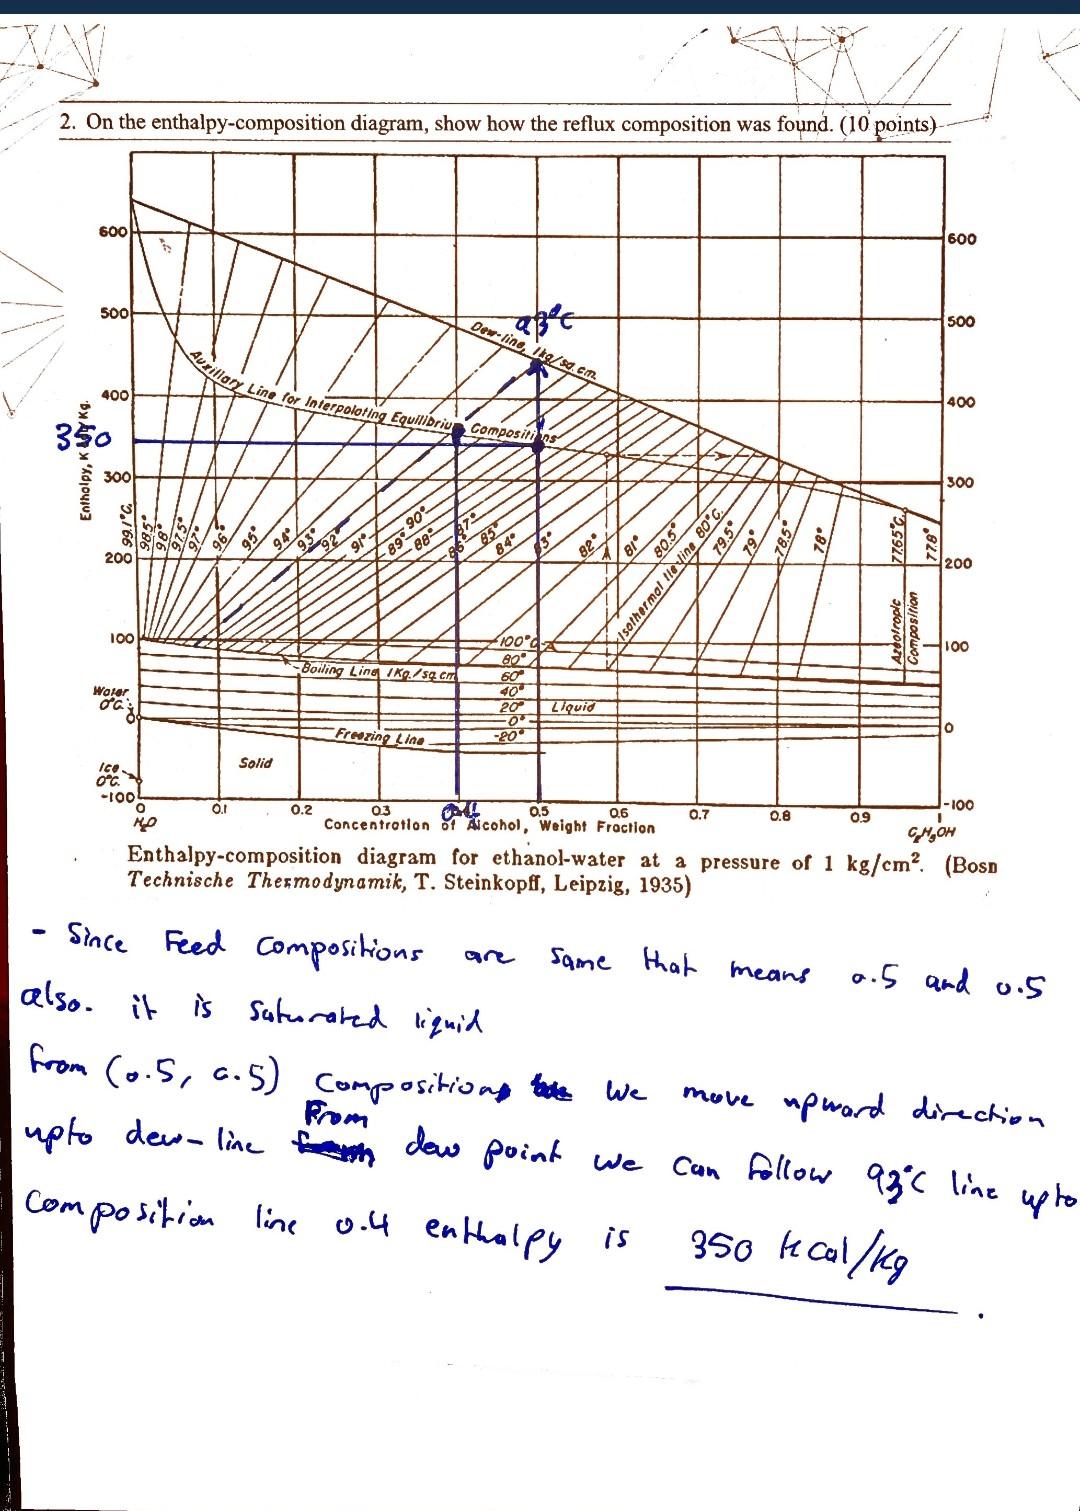 2. On the enthalpy-composition diagram, show how the reflux composition was found. (10 points)
600
600
500
500
93°C
Dew-line, 1kg/sq.cm.
Auxiliary Line for Interpolating Equilibrium Compositions
400
400
350
Enthalpy, K
Kg.
300
300
99.1°C.
98.5°
98°
97.5°
97°
96°
95°
94°
93°
92°
91°
90°
89°
88°
87°
86°
85°
84°
83°
82°
81°
80.5°
Isothermal tie line 80°C.
79.5°
79°
78.5°
78°
77.65°C.
77.8°
200
200
Azeotropic
Composition
100
100
100°C.
80°
60°
40°
20°
0°
-20°
Boiling Line 1Kg./sq.cm
Liquid
Water
0°C.
0
0
Freezing Line
Solid
Ice
0°C.
-100
-100
0
0.1
0.2
0.3
0.4
0.5
0.6
0.7
0.8
0.9
1
H₂O
Concentration of Alcohol, Weight Fraction
C₂H₅OH
Enthalpy-composition diagram for ethanol-water at a pressure of 1 kg/cm². (Bosn
Technische Thermodynamik, T. Steinkopff, Leipzig, 1935)
- Since Feed compositions are same that means 0.5 and 0.5
also. it is saturated liquid
from (0.5, 0.5) Compositions we move upward direction
upto dew-line From dew point we can follow 93°C line upto
Composition line 0.4 enthalpy is 350 kcal/kg.